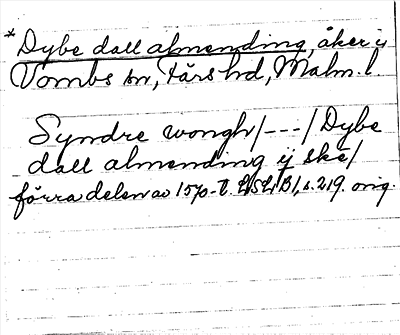 * Dybe dall almending, åker i
Vombs sn, Färs hd, Malm. l.
Syndre wongh/---/Dybe
dall almending ij ske/
förra delen av 1570-t. LSLB1, s. 219. orig.